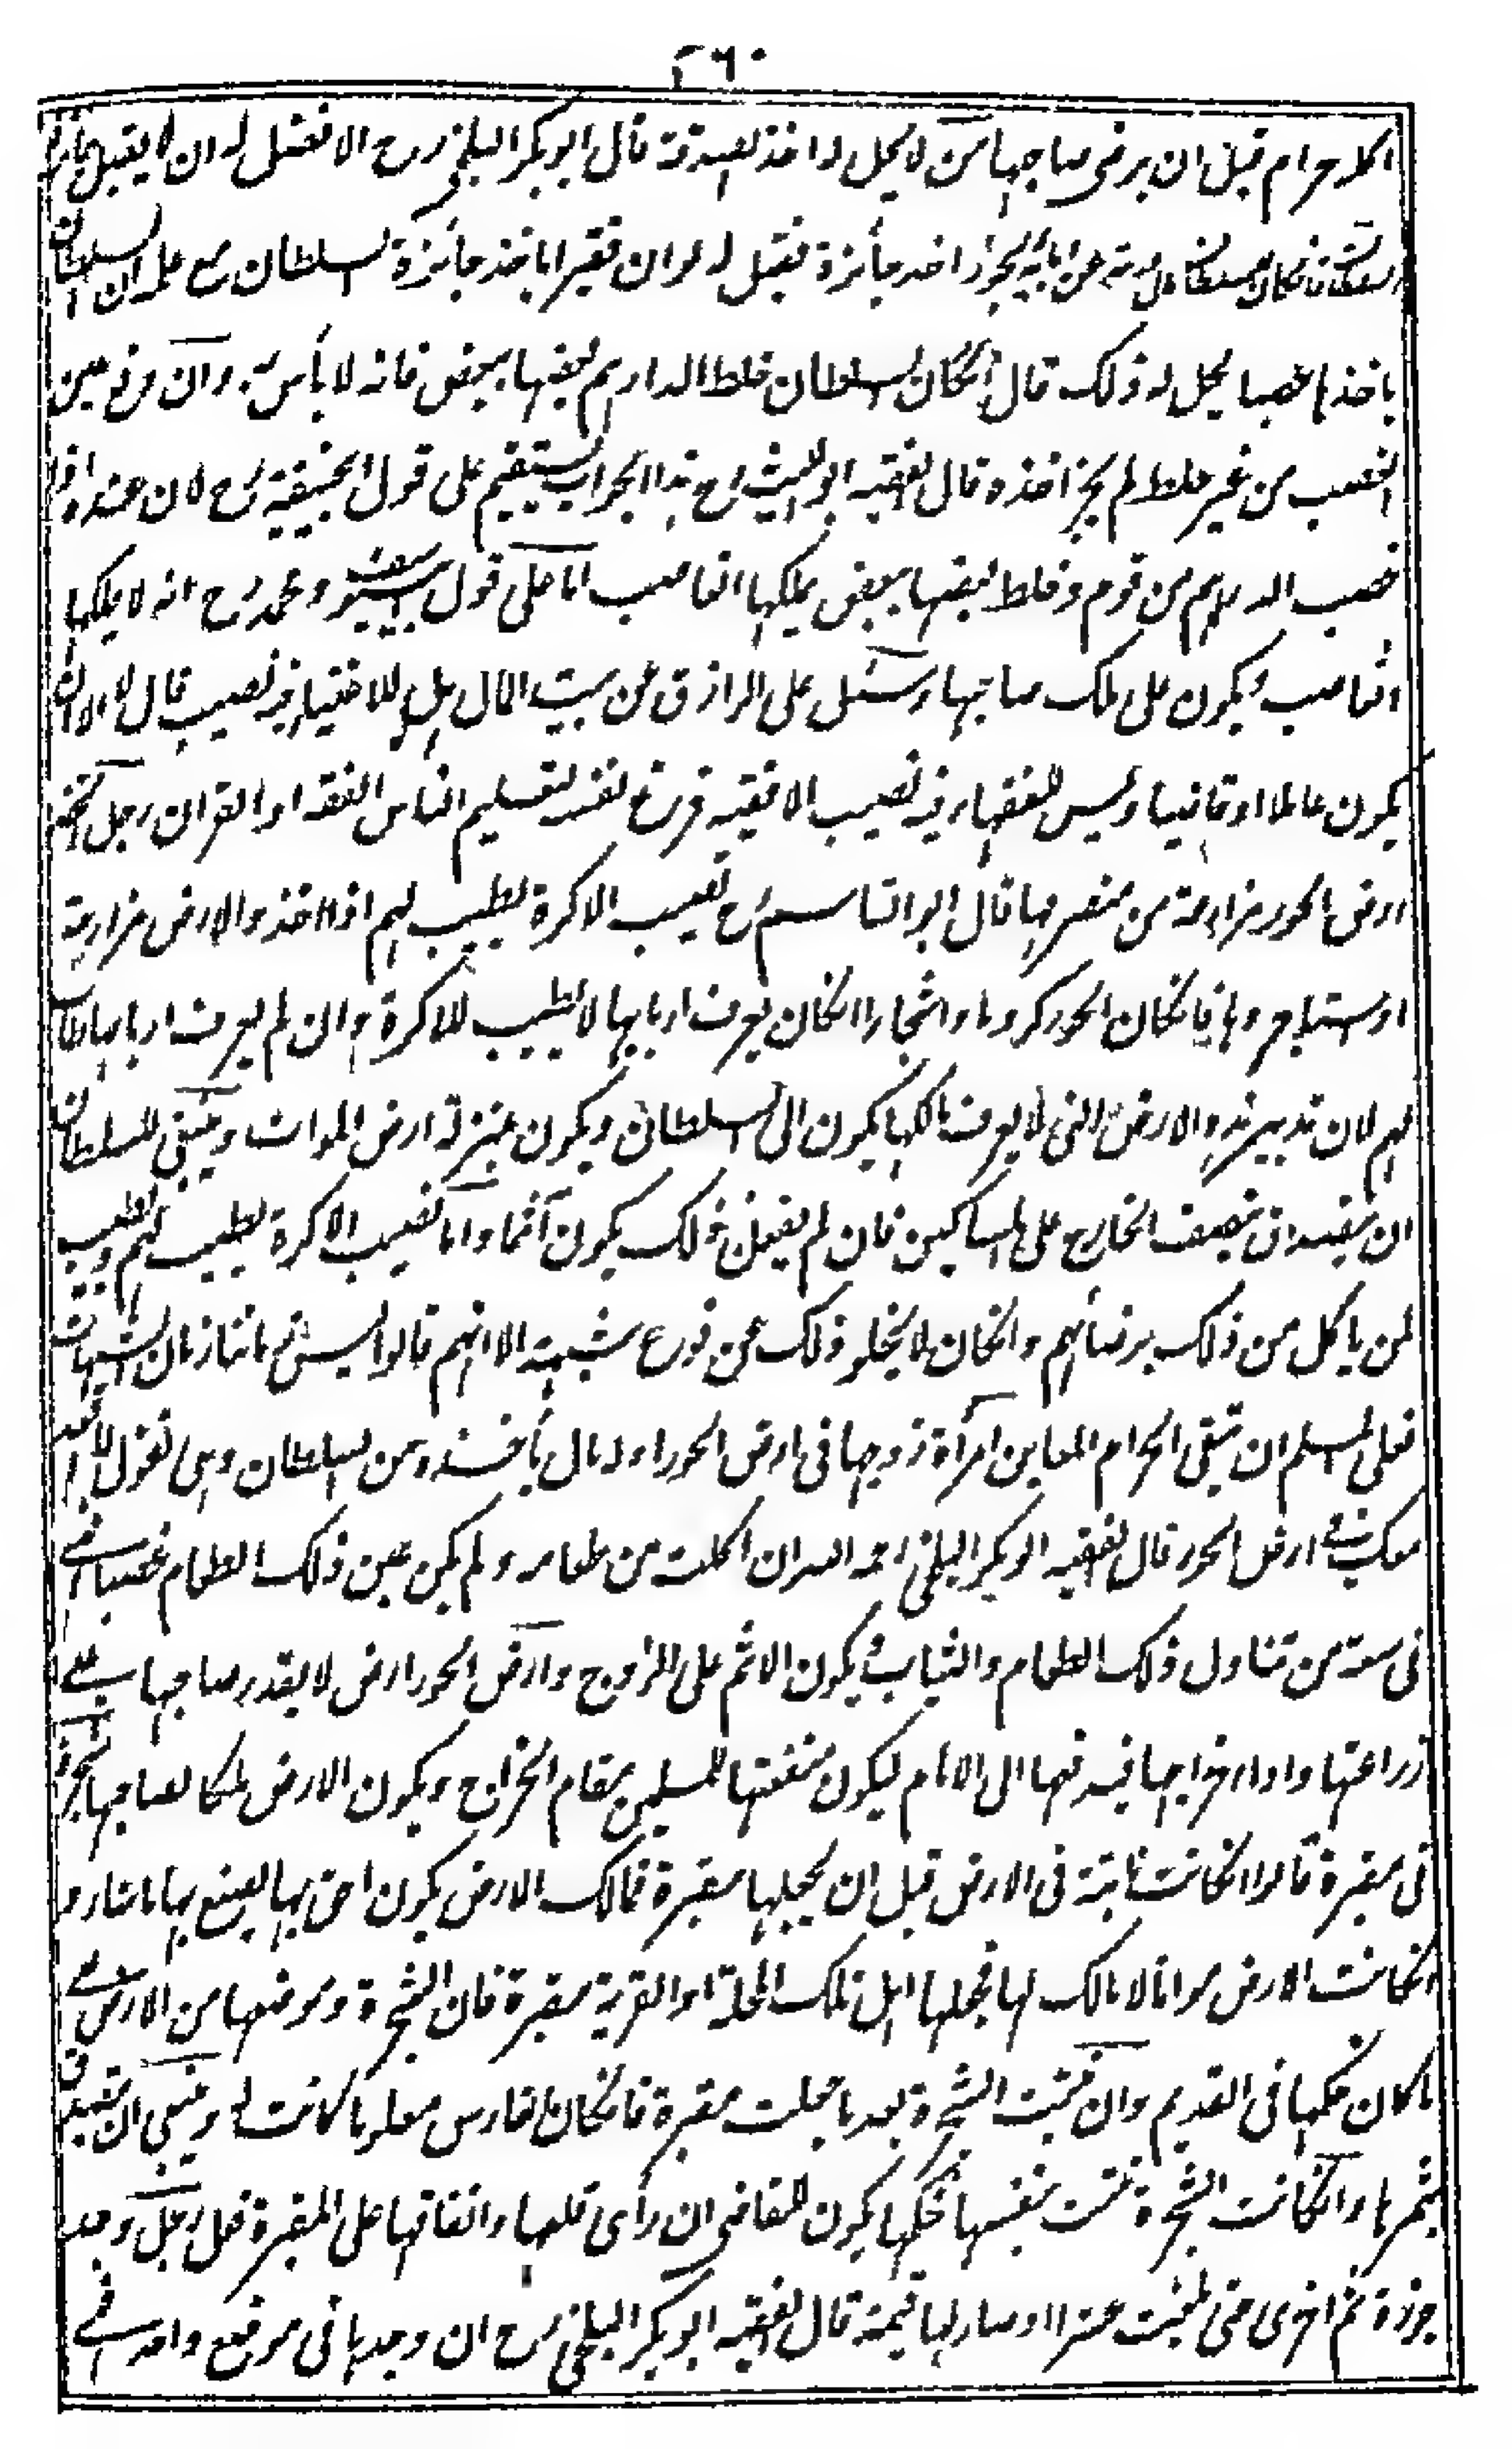 ٢٦٠
اكلا حرام قبل ان يرضى صاحبها من لا يحل له اخذ الصدقة قال ابو بكر البلخى رح الافضل له ان لا يقبل جائزة
السلطان اخذ جائزة فقيل له لو ان فقيرا ياخذ جائزة السلطان مع علمه ان السلطان
ياخذها غصبا ايحل له ذلك قال انكان السلطان خلط الدراهم بعضها ببعض فانه لا بأس به وان دفع عين
الغصب من غير خلط لم يجز اخذه قال الفقيه ابو الليث رح هذا الجواب يستقيم على قول ابيحنيفة رح لان عنده اذا
غصب الدراهم من قوم وخلط بعضها ببعض يملكها الغاصب اما على قول ابى يوسف ومحمد رح انه لا يملكها
الغاصب ويكون على ملك صاحبها وسئل على الرازى عن بيت المال هل للاغنياء فيه نصيب قال لا الا ان
يكون عاملا او قاضيا وليس للفقهاء فيه نصيب الا فقيه فرغ نفسه لتعليم الناس الفقه او القران رجل اخذ
ارض الحور مزارعة من متصرفها قال ابو القاسم رح نصيب الاكرة يطيب لهم اذا اخذوا الارض مزارعة
او استاجروها فانكان الحور كروما واشجارا انكان يعرف اربابها لا يطيب للاكرة وان لم يعرف اربابها طاب
لهم لان تدبير هذه الارض التى لا يعرف مالكها يكون الى السلطان ويكون بمنزلة ارض الموات وينبغى للسلطان
ان يتصدق بنصيف الخارج على المساكين فان لم يفعل ذلك يكون آثما واما نصيب الاكرة يطيب لهم ويطيب
لمن ياكل من ذلك برضائهم وانكان لا يخلو ذلك عن نوع شبهة الا انهم قالوا ليس فى زماننا زمان الشبهات
فعلى المسلم ان يتقى الحرام المعاين امرأة زوجها فى ارض الحور او له مال يأخذه من السلطان وهى تقول لا اقعد
معك فى ارض الحور قال الفقيه ابو بكر البلخى رحمه الله ان اكلت من طعامه ولم يكن عين ذلك الطعام غصبا فهى
فى سعة من تناول ذلك الطعام والثياب ويكون الاثم على الزوج وارض الحور ارض لا يقدر صاحبها على
زراعتها واداء خراجها فيدفعها الى الامام ليكون منفعتها للمسلمين مقام الخراج ويكون الارض ملكا لصاحبها شجرة
فى مقبرة قالوا انكانت نابتة فى الارض قبل ان يجعلها مقبرة فمالك الارض يكون احق بها يصنع بها ما شاء و
انكانت الارض مواتا لا مالك لها فجعلها اهل تلك المحلة او القرية مقبرة فان الشجرة وموضعها من الارض على
ما كان حكمها فى القديم وان نبتت الشجرة بعد ما جعلت مقبرة فانكان الغارس معلوما كانت له وينبغى ان يتصدق
بثمرها وانكانت الشجرة نبتت بنفسها فحكمها يكون للقاضى ان رأى قلعها وانفاقها على المقبرة فعل رجل وجد
جوزة ثم اخرى حتى بلغت عشرا او صار لها قيمة قال الفقيه ابو بكر البلخى رح ان وجدها فى موضع واحد فهى